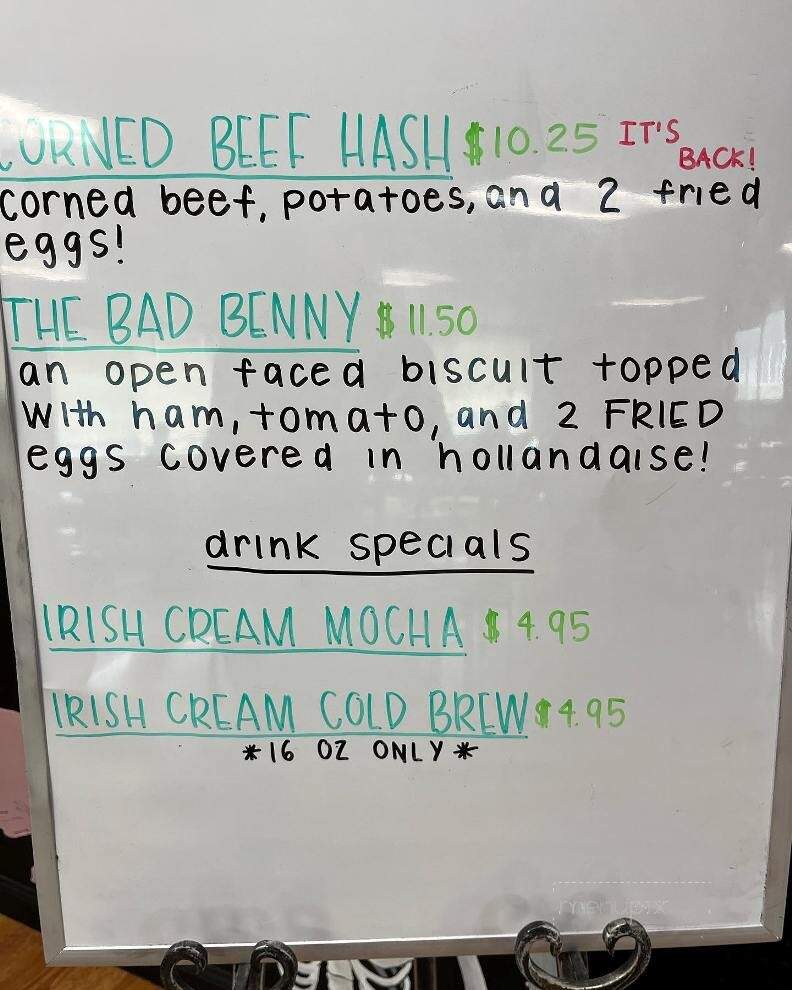 CORNED BEEF HASH $10.25 IT'S BACK!
corned beef, potatoes, and 2 fried
eggs!
THE BAD BENNY $11.50
an open faced biscuit topped
with ham, tomato, and 2 FRIED
eggs covered in hollandaise!
drink specials
IRISH CREAM MOCHA $4.95
IRISH CREAM COLD BREW $4.95
*16 OZ ONLY*
menupix